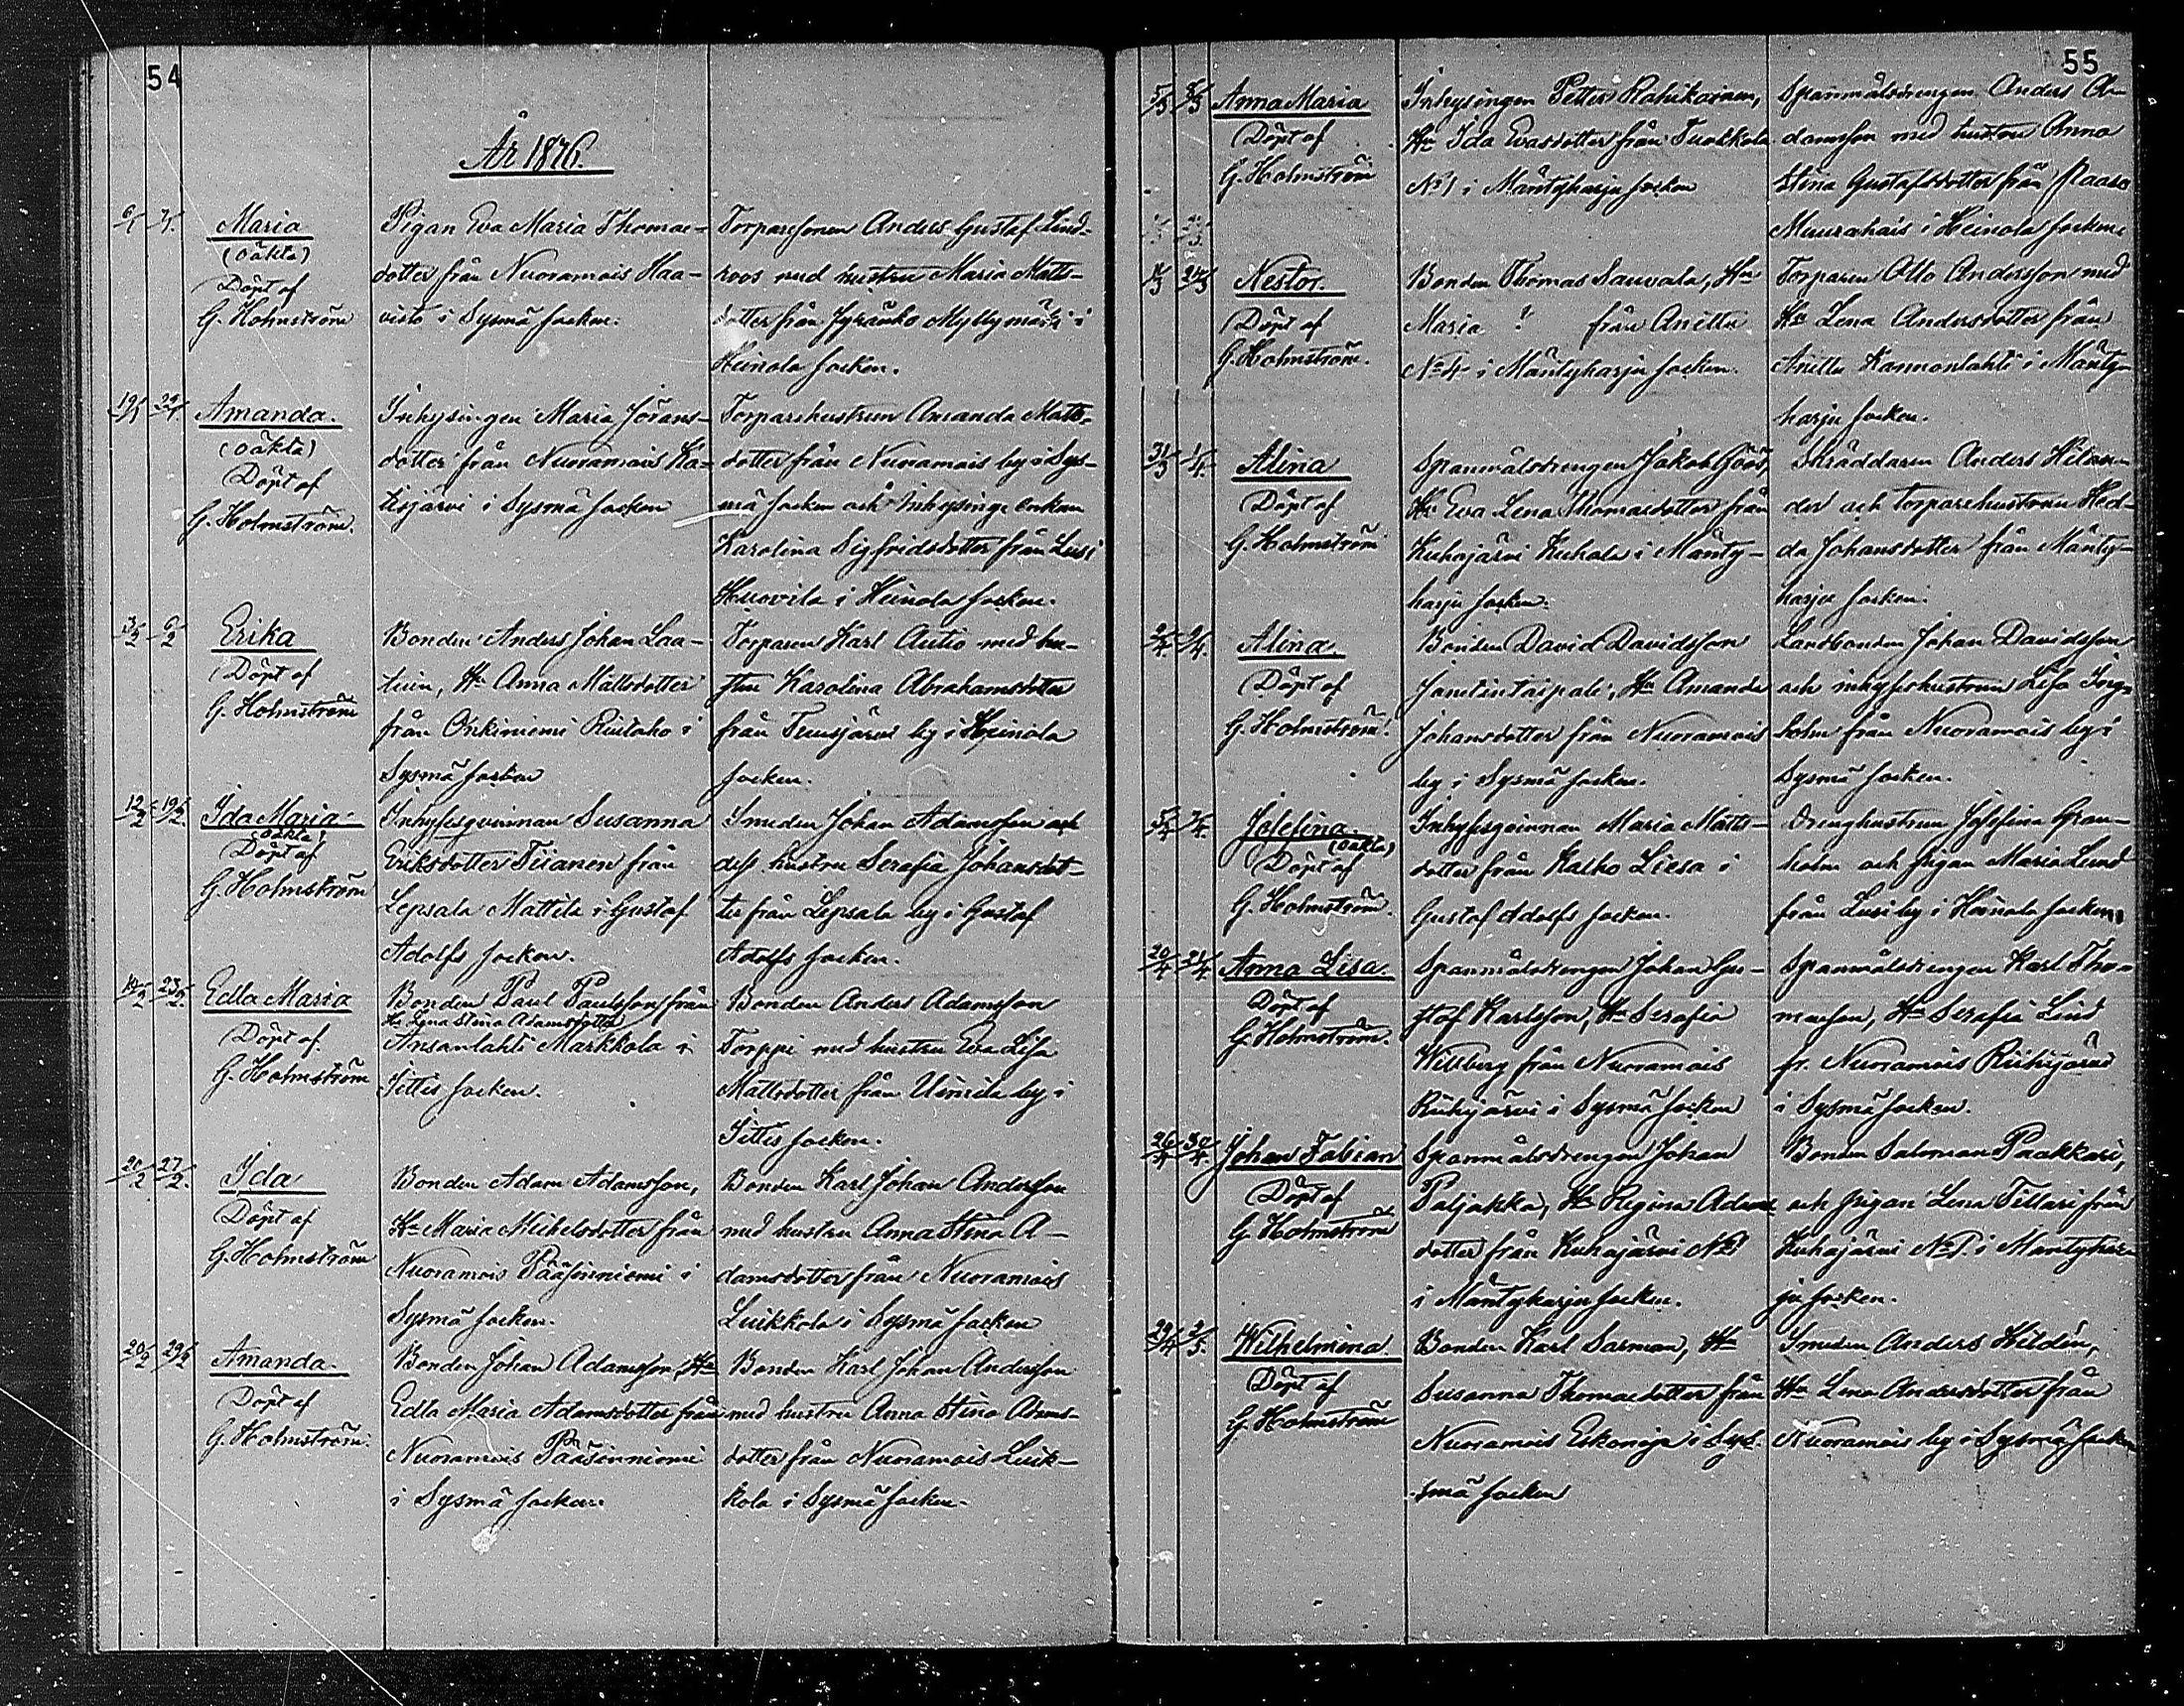 54
År 1876.
6/1 7/1. Maria
(oäkta)
Döpt af
G. Holmström
Pigan Eva Maria Thomas-
dotter från Nuoramois Haa-
visto i Sysmä socken.
Torparesonen Anders Gustaf Lind-
roos med hustru Maria Matts-
dotter från Jyränkö Myllymäki i
Heinola socken.
19/1 29/1. Amanda.
(oäkta)
Döpt af
G. Holmström.
Inhysingen Maria Jörans-
dotter från Nuoramois Kä-
tisjärvi i Sysmä socken
Torparehustrun Amanda Matts-
dotter från Nuoramois by i Sys-
mä socken och Inhysinge enkan
Karolina Sigfridsdotter från Lusi
Huovila i Heinola socken.
3/2 6/2 Erika
Döpt af
G. Holmström
Bonden Anders Johan Laa-
, Hu Anna Mattsdotter
från Onkiniemi i
Sysmä socken
Torparen Karl Autio med hu-
stru Karolina Abrahamsdotter
från Tuusjärvi by i Heinola
socken.
12/2 19/2. Ida Maria
oäkta
Döpt af
G. Holmström
Inhysesqvinnan Susanna
Eriksdotter Tiianen från
Lepsala Mattila i Gustaf
Adolfs socken.
Smeden Johan Adamsson och
dess hustru Serafia Johansdot-
ter från Lepsala by i Gustaf
Adolfs socken.
23/2. Edla Maria
Döpt af
G. Holmström
Bonden Paul Paulsson från
Hu Lena Stina Adamsdotter
Ansanlahti Markkola i
Jittis socken.
Bonden Anders Adamsson
Torppi med hustru Eva Lisa
Mattsdotter från by i
Jittis socken.
20/2 27/2. Ida
Döpt af
G. Holmström
Bonden Adam Adamsson,
Hu Maria Mikelsdotter från
Nuoramois Pääsinniemi i
Sysmä socken.
Bonden Karl Johan Andersson
med hustru Anna Stina A-
damsdotter från Nuoramois
Luikkola i Sysmä socken
20/2 29/2 Amanda.
Döpt af
G. Holmström.
Bonden Johan Adamsson, Hu
Edla Maria Adamsdotter från
Nuoramois Pääsinniemi
i Sysmä socken.
Bonden Karl Johan Andersson
med hustru Anna Stina Adams-
dotter från Nuoramois Luik-
kola i Sysmä socken.
55
5/3 Anna Maria
Döpt af
G. Holmström
Inhysingen Petter Rahikainen,
Hu Ida Evasdotter från Tuukkola
No 1 i Mäntyharju socken
Spanmålsdrengen Anders A-
damsson med hustru Anna
Stina Gustafsdotter från Paaso
Muurahais i Heinola socken
24/3 Nestor.
Döpt af
G. Holmström.
Bonden Thomas Sauvala, Hu
Maria ? från Anittu
No 4 i Mäntyharju socken.
Torparen Otto Andersson med
Hu Lena Andersdotter från
Anittu Kannonlahti i Mänty-
harju socken.
31/3 1/4. Alina
Döpt af
G. Holmström
Spanmålsdrengen Jakob Göös,
Hu Eva Lena Thomasdotter från
Kuhajärvi Kuhala i Mänty-
harju socken.
Skräddaren Anders Hilan-
der och torparehustrun Hed-
da Johansdotter från Mänty-
harju socken.
2/4. 9/4. Alina.
Döpt af
G. Holmström.
Bonden David Davidsson
Janetintaipale, Hu Amanda
Johansdotter från Nuoramois
by i Sysmä socken.
Landbonden Johan Davidsson
och inhyseshustrun Lisa Ing-
holm från Nuoramois by i
Sysmä socken.
5/4 7/4. Josefina.
(oäkta)
Döpt af
G. Holmström.
Inhysesqvinnan Maria Matts-
dotter från Kalho Liesa i
Gustaf Adolfs socken.
Drenghustrun Josefina Gran-
holm och pigan Maria Lund
från Lusi by i Heinola socken
20/4 21/4 Anna Lisa.
Döpt af
G. Holmström.
Spanmålsdrengen Johan Gu-
staf Karlsson, Hu Serafia
Willberg från Nuoramois
Riihijärvi i Sysmä socken
Spanmålsdrengen Karl Tho-
masson, Hu Serafia Lind
fr. Nuoramois Riihijärvi
i Sysmä socken.
26/4 30/4. Johan Fabian
Döpt af
G. Holmström
Spanmålsdrengen Johan
Paljakka, Hu Regina Adams-
dotter från Kuhajärvi No 1
i Mäntyharju socken.
Bonden Salomon Paakkari,
och pigan Lena Tillari från
Kuhajärvi No 1. i Mäntyhar-
ju socken.
29/4 2/5. Wilhelmina.
Döpt af
G. Holmström
Bonden Karl Sarman, Hu
Susanna Thomasdotter från
Nuoramois Erkonoja i Sys-
mä socken
Smeden Anders Hildén,
Hu Lena Andersdotter från
Nuoramois by i Sysmä socken